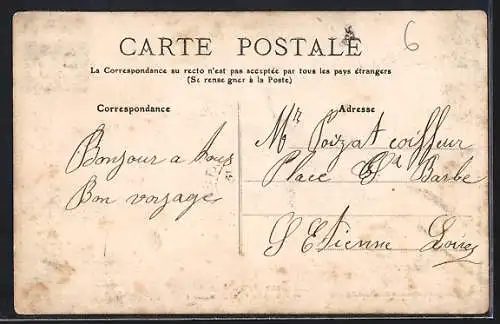 6
CARTE POSTALE
La Correspondance au recto n'est pas acceptée par tous les pays étrangers
(Se renseigner à la Poste)
Correspondance
Adresse
Bonjour a tous
Bon voyage
Mr Poizat coiffeur
Place Ste Barbe
St Etienne Loire